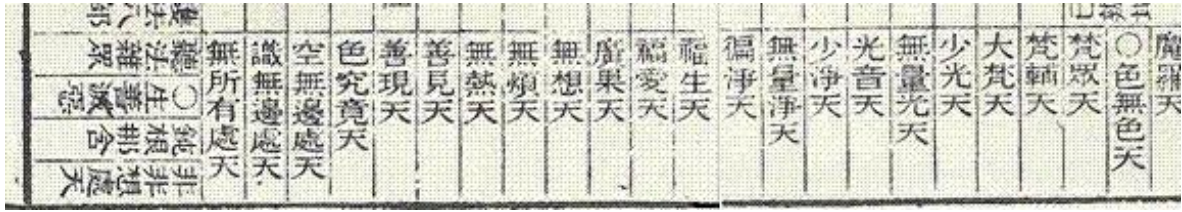 魔羅天
○色無色天
梵眾天
梵輔天
大梵天
少光天
無量光天
光音天
少淨天
無量淨天
徧淨天
福生天
福愛天
廣果天
無想天
無煩天
無熱天
善見天
善現天
色究竟天
空無邊處天
識無邊處天
無所有處天
非非想處天
鈍根那含
○生善滅惡
聽法雜眾
法八部